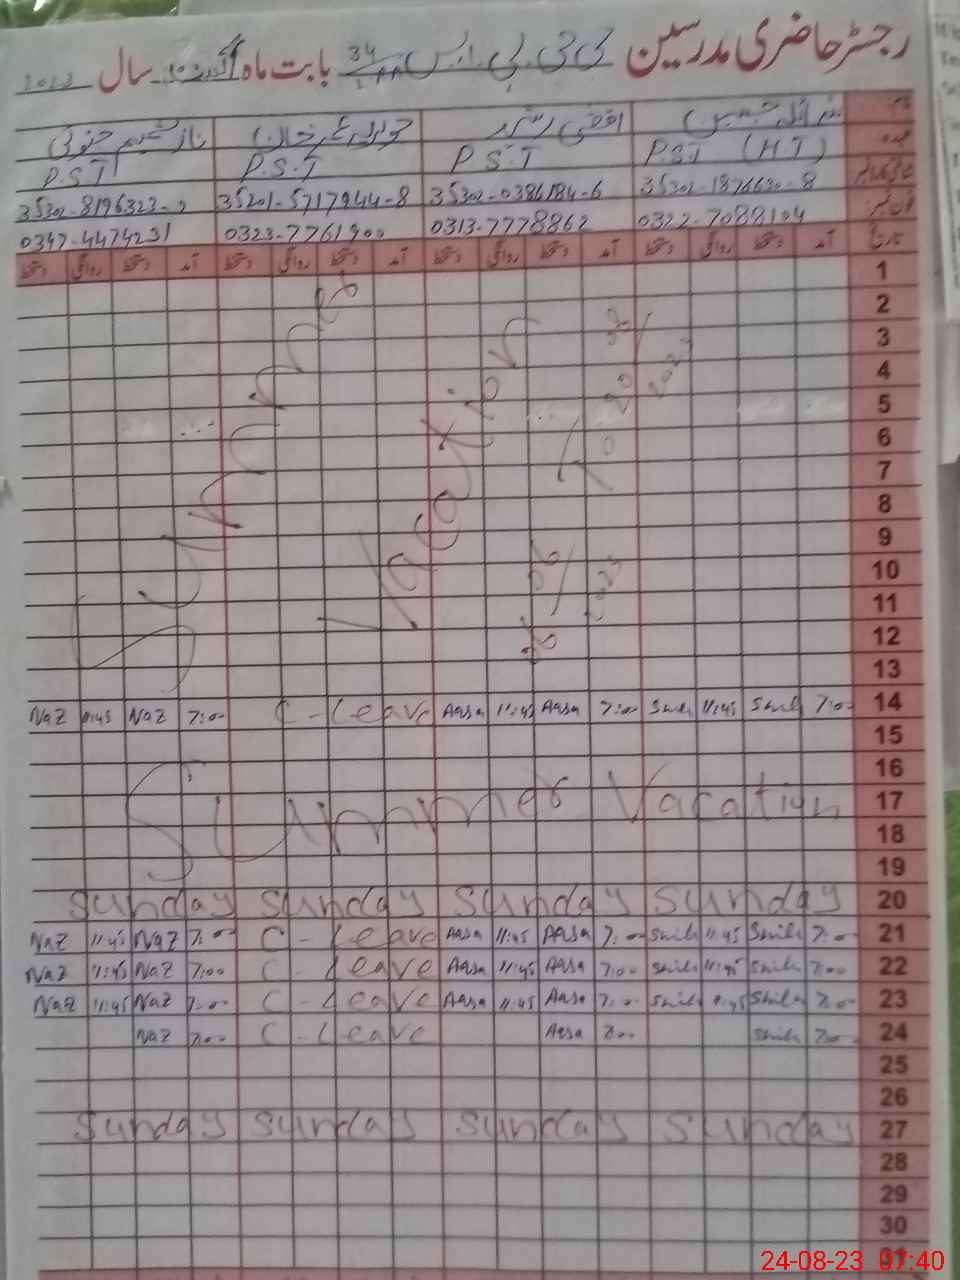 رجسٹر حاضری مدرسین جی جی پی ایس 34 بابت ماہ اگست سال
نام
P.S.T (H.T) P.S.T P.S.T P.S.T
35302-0386184-6 35201-5717944-8
0322-7088104 0313-7778862 0323-7761900 0347-4474231
تاریخ آمد دستخط روانگی دستخط آمد دستخط روانگی دستخط آمد دستخط روانگی دستخط آمد دستخط روانگی دستخط
1
2
3
4
5
6
7
8
9
10
11
12
13
Summer
Vacation
To
2023
NaZ 11:45 NaZ 7:00 C-Leave Aqsa 11:45 Aqsa 7:00 11:45 7:00 14
15
16
Summer Vacation 17
18
19
Sunday Sunday Sunday Sunday 20
NaZ 11:45 NaZ 7:00 C-Leave Aqsa 11:45 Aqsa 7:00 11:45 7:00 21
NaZ 11:45 NaZ 7:00 C-Leave Aqsa 11:45 Aqsa 7:00 11:45 7:00 22
NaZ 11:45 NaZ 7:00 C-Leave Aqsa 11:45 Aqsa 7:00 11:45 7:00 23
NaZ 7:00 C-Leave Aqsa 7:00 7:00 24
25
26
Sunday Sunday Sunday Sunday 27
28
29
30
31
24-08-23 07:40